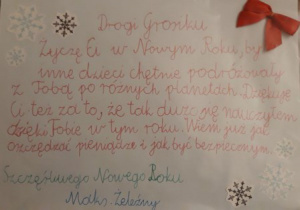 Drogi Groniku
Życzę Ci w Nowym Roku, by
inne dzieci chętnie podróżowały
z Tobą po różnych planetach. Dziękuję
Ci też za to, że tak dużo się nauczyłem
dzięki Tobie w tym roku. Wiem już jak
oszczędzać pieniądze i jak być bezpiecznym.
Szczęśliwego Nowego Roku
Maks. Żeleźny